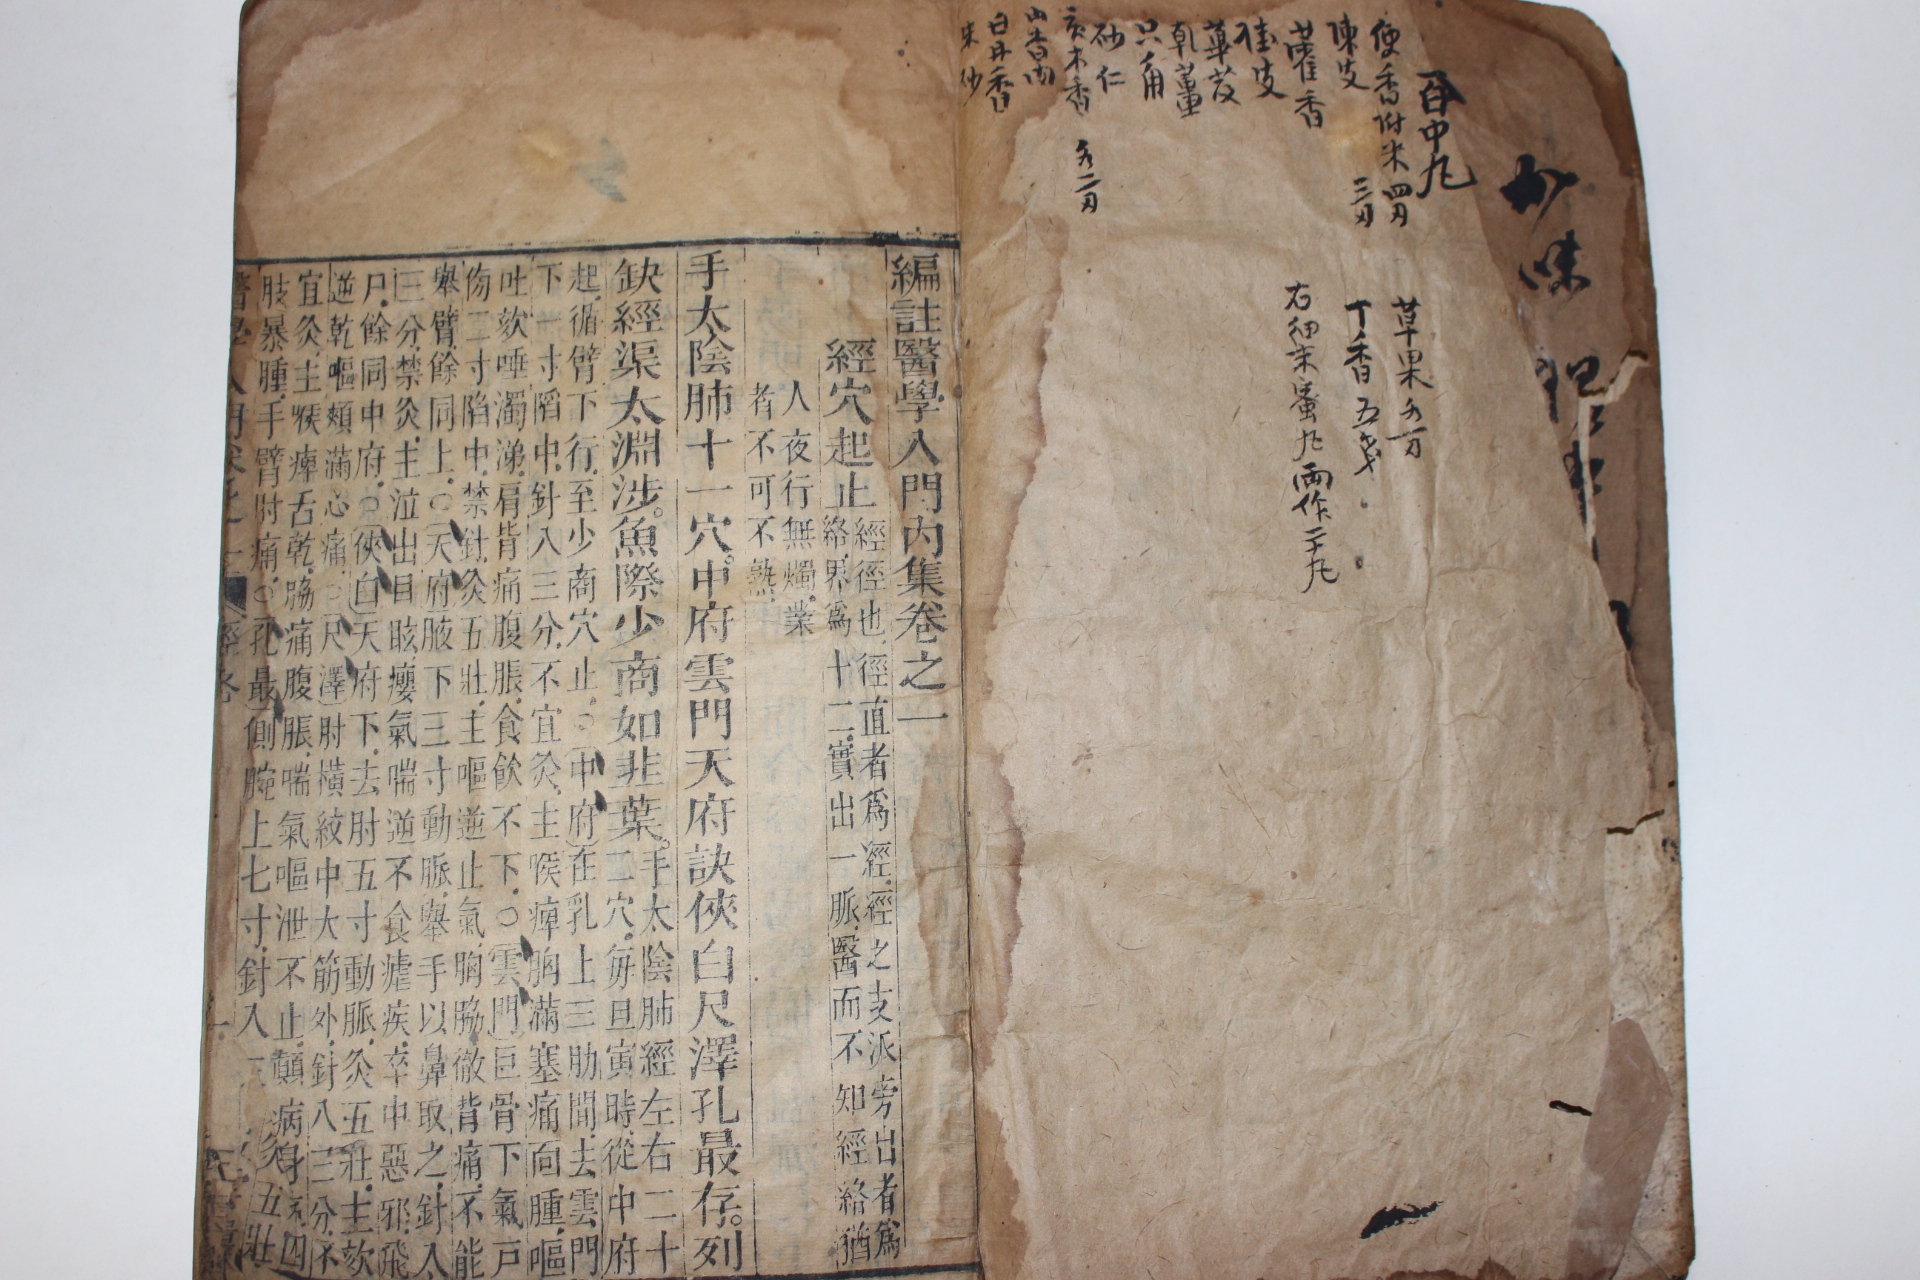 妙味
百中丸
便香附米四刃
陳皮 三刃
藿香
桂皮
蓽茇
乾薑
只角
砂仁
唐木香 各二刃
白丹香
朱砂
草果 各一刃
丁香五戔
右細末蜜丸兩作二十丸
編註醫學入門內集卷之一
經穴起止
經徑也徑直者爲經經之支派旁出者爲
絡界爲十二實出一脈醫而不知經絡猶
人夜行無燭業
者不可不熟
手太陰肺十一穴中府雲門天府訣俠白尺澤孔最存列
缺經渠太淵涉魚際少商如韭葉
手太陰肺經左右二十
二穴每旦寅時從中府
起循臂下行至少商穴止○中府在乳上三肋間去雲門
下一寸陷中針入三分不宜灸主喉痺胸滿塞痛面腫嘔
吐欬唾濁涕肩背痛腹脹食飲不下○雲門巨骨下氣戶
傍二寸陷中禁針灸五壯主嘔逆止氣胸脇徹背痛不能
舉臂餘同上○天府腋下三寸動脈舉手以鼻取之針入
三分禁灸主泣出目眩癭氣喘逆不食瘧疾卒中惡邪飛
尸餘同中府○俠白天府下去肘五寸動脈灸五壯主欬
逆乾嘔煩滿心痛○尺澤肘橫紋中大筋外針入三分不
宜灸主喉痺舌乾脇痛腹脹喘氣嘔泄不止顛病身疼四
肢暴腫手臂肘痛○孔最側腕上七寸針入三分灸五壯